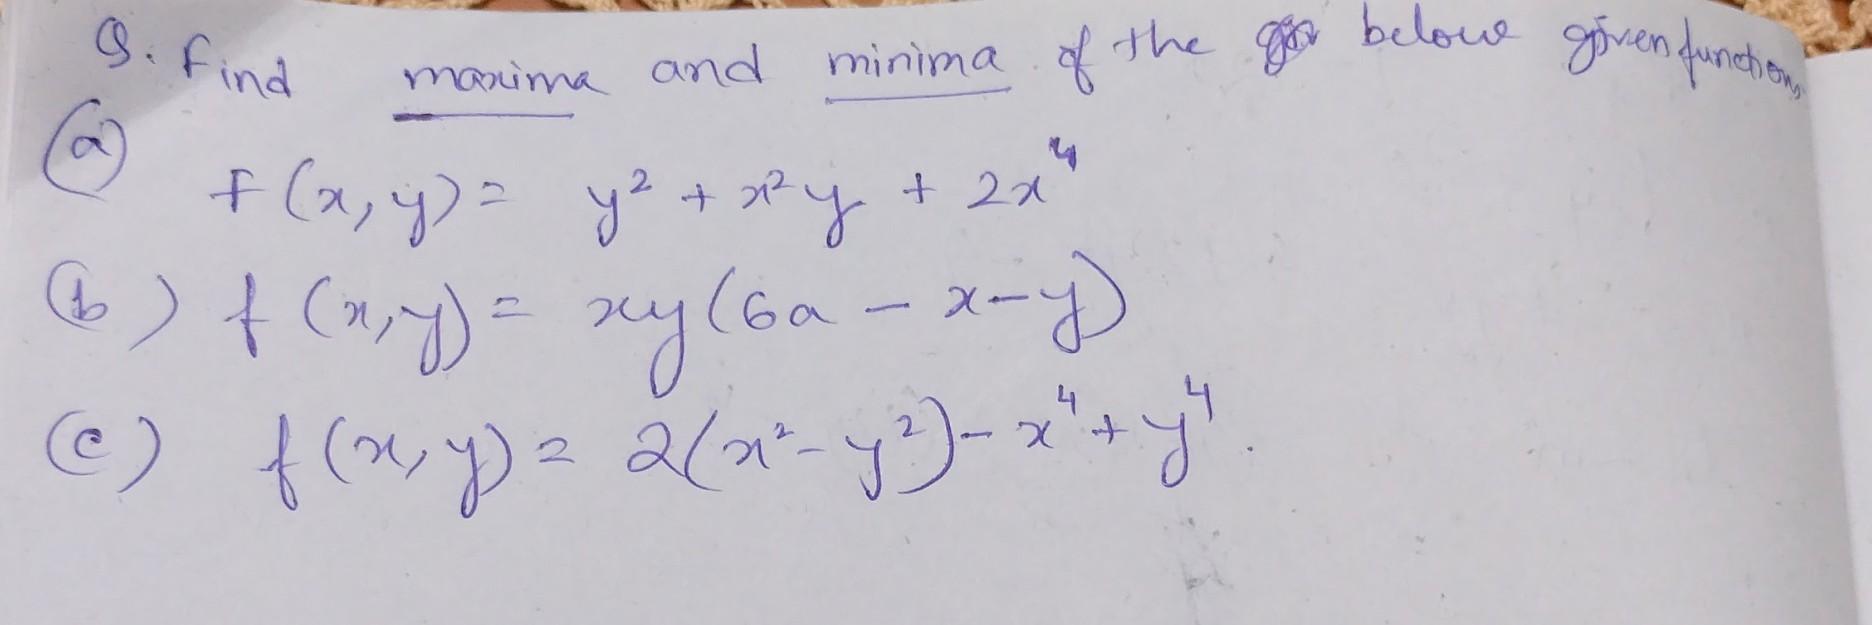 Q. Find maxima and minima of the below given functions
(a)
f(x,y) = y² + x²y + 2x⁴
(b) f(x,y) = xy(6a - x - y)
(c) f(x,y) = 2(x² - y²) - x⁴ + y⁴.